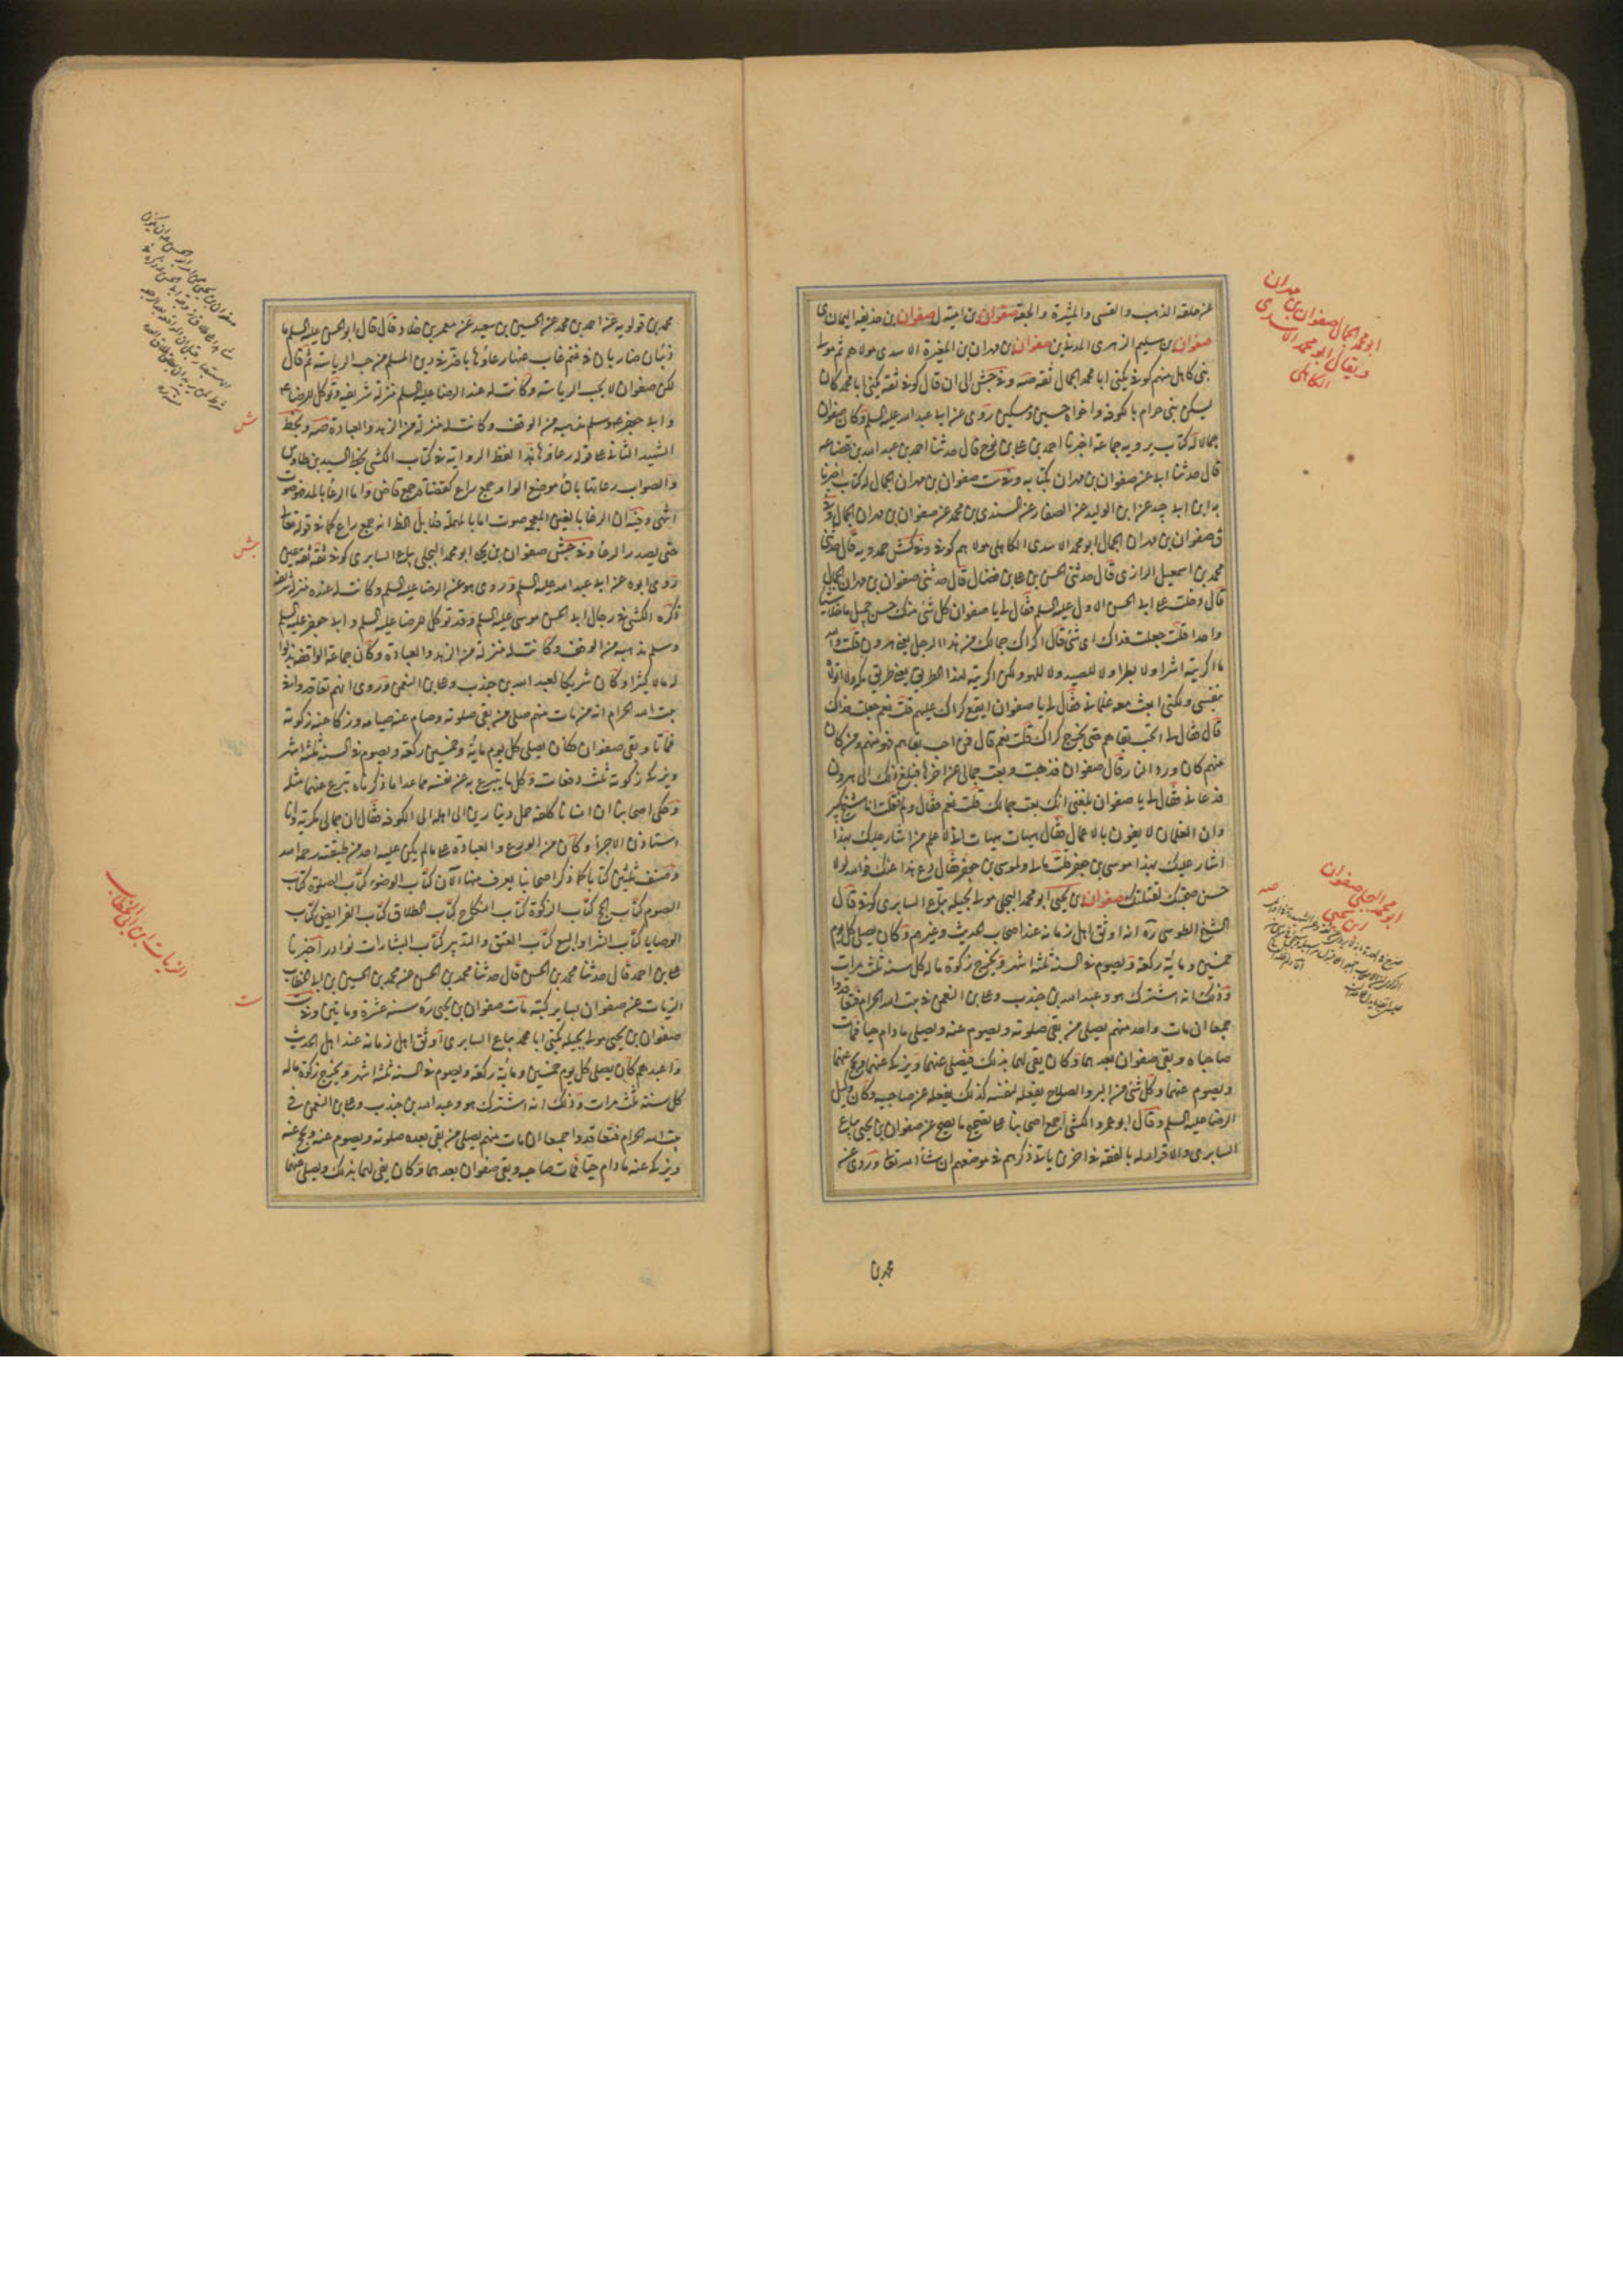 عن حلقه الذهب والقسى والميثرة والجعة صفوان بن امية ل صفوان بن حذيفه اليمان ى
صفوان بن سليم الزهرى المدنى ين صفوان بن مهران بن المغيرة الاسدى مولاهم ثم مولى
بنى كاهل منهم كوفى يكنى ابا محمد الجمال ثقة صه وفى جش الى ان قال كوفى ثقة يكنى ابا محمد كان
يسكن بنى حرام بالكوفة واخواه حسين ومسكين روى عن ابى عبد الله عليه السلم وكان صفوان
جمالا له كتاب يرويه جماعة اخبرنا احمد بن على بن نوح قال حدثنا احمد بن عبد الله بن قضاعه
قال حدثنا ابى عن صفوان بن مهران بكتابه وفى ست صفوان بن مهران الجمال له كتاب اخبرنا
به ابن ابى جيد عن ابن الوليد عن الصفار عن السندى بن محمد عن صفوان بن مهران الجمال وفى
ق صفوان بن مهران الجمال ابو محمد الاسدى الكاهلى مولاهم كوفى وفى كش حمدويه قال حدثنى
محمد بن اسمعيل الرازى قال حدثنى الحسن بن على بن فضال قال حدثنى صفوان بن مهران الجمال
قال دخلت على ابى الحسن الاول عليه السلم فقال لى يا صفوان كل شئ منك حسن جميل ما خلا شيئا
واحدا قلت جعلت فداك اى شئ قال اكراك جمالك من هذا الرجل يعنى هرون قلت والله
ما اكريته اشرا ولا بطرا ولا للصيد ولا للهو ولكن اكريته لهذا الطريق يعنى طريق مكه ولا اتولاه
بنفسى ولكنى ابعث معه غلمانى فقال لى يا صفوان ايقع كراك عليهم قلت نعم جعلت فداك
قال فقال لى اتحب بقاهم حتى يخرج كراك قلت نعم قال فمن احب بقاهم فهو منهم ومن كان
منهم كان ورد النار قال صفوان فذهبت وبعت جمالى عن اخرها فبلغ ذلك الى هرون
فدعانى فقال لى يا صفوان بلغنى انك بعت جمالك قلت نعم فقال ولم فقلت انا شيخ كبير
وان الغلمان لا يفون بالاعمال فقال هيهات هيهات انى لاعلم من اشار عليك بهذا
اشار عليك بهذا موسى بن جعفر قلت مالى ولموسى بن جعفر فقال دع هذا عنك فوالله لولا
حسن صحبتك لقتلتك صفوان بن يحيى ابو محمد البجلى مولى بجيله بياع السابرى كوفى قال
الشيخ الطوسى ره انه اوثق اهل زمانه عند اصحاب الحديث وغيرهم وكان يصلى كل يوم
خمسين ومايه ركعة ويصوم فى السنة ثلثة اشهر ويخرج زكوة ماله كل سنه ثلث مرات
وذلك انه اشترك هو وعبد الله بن جندب وعلى بن النعمن فى بيت الله الحرام فتعاقدوا
جميعا ان مات واحد منهم يصلى من بقى صلوته ويصوم عنه ويصلى مادام حيا فمات
صاحباه وبقى صفوان بعدهما وكان يفى لهما بذلك فيصلى عنهما ويزكى عنهما ويحج عنهما
ويصوم عنهما وكل شئ من البر والصلاح يفعله لنفسه كذلك يفعله عن صاحبيه وكان وكيل
الرضا عليه السلم وقال ابو عمرو الكشى اجمع اصحابنا على تصحيح ما يصح عن صفوان بن يحيى بياع
السابرى والاقرار له بالفقه فى اخرين ياتى ذكرهم فى مواضعهم ان شاء الله تعالى وروى عنه
محمد بن
ابو محمد الجمال صفوان بن مهران
ويقال ابو محمد الاسدى
الكاهلى
ابو محمد البجلى صفوان
بن يحيى
محمد بن قولويه عن احمد بن محمد عن الحسين بن سعيد عن معمر بن خلاد قال قال ابو الحسن عليه السلم ما
ذئبان ضاريان فى غنم غاب عنها رعاؤها باضر فى دين المسلم من حب الرياسة ثم قال
لكن صفوان لا يحب الرياسه وكانت له عند الرضا عليه السلم منزلة شريفه وتوكل للرضا ع
وابى جعفر ع وسلم مذهبه من الوقف وكانت له منزلة من الزهد والعبادة صه وبخط
الشهيد الثانى على قوله رعاؤها هذا لفظ الرواية فى كتاب الكشى بخط السيد بن طاوس
والصواب رعاتها بالتاء موضع الواو جمع راع كقضاة جمع قاض واما الرغا بالمد فهو صوت
انتهى وفيه ان الرغا بالغين المعجمه صوت اما بالمهملة فلا بل الظ انه جمع راع كما فى قوله تعالى
حتى يصدر الرعاء وفى جش صفوان بن يحيى ابو محمد البجلى بياع السابرى كوفى ثقة ثقة عين
روى ابوه عن ابى عبد الله عليه السلم وروى هو عن الرضا عليه السلم وكانت له عنده منزلة شريفة
ذكره الكشى فى رجال ابى الحسن موسى عليه السلم وقد توكل للرضا عليه السلم وابى جعفر عليه السلم
وسلم مذهبه من الوقف وكانت له منزلة من الزهد والعبادة وكان جماعة الواقفه بذلوا
له مالا كثيرا وكان شريكا لعبد الله بن جندب وعلى بن النعمن وروى انهم تعاقدوا فى
بيت الله الحرام انه من مات منهم صلى من بقى صلوته وصام عنه صيامه وزكا عنه زكوته
فماتا وبقى صفوان فكان يصلى كل يوم مايه وخمسين ركعة ويصوم فى السنه ثلثة اشهر
ويزكى زكوته ثلث دفعات وكل ما يتبرع به عن نفسه مما عدا ما ذكرناه تبرع عنهما مثله
وحكى اصحابنا ان انسانا كلفه حمل دينارين الى اهله الى الكوفه فقال ان جمالى مكرية وانا
استاذن الاجراء وكان من الورع والعبادة على ما لم يكن عليه احد من طبقته رحمه الله
وصنف ثلثين كتابا كما ذكر اصحابنا يعرف منها الان كتاب الوضوء كتاب الصلوة كتاب
الصوم كتاب الحج كتاب الزكوة كتاب النكاح كتاب الطلاق كتاب الفرايض كتاب
الوصايا كتاب الشرا والبيع كتاب العتق والتدبير كتاب البشارات نوادر اخبرنا
على بن احمد قال حدثنا محمد بن الحسن قال حدثنا محمد بن الحسن عن محمد بن الحسين بن ابى الخطاب
الزيات عن صفوان بساير كتبه مات صفوان بن يحيى ره سنه عشرة ومايتين وفى ست
صفوان بن يحيى مولى بجيله يكنى ابا محمد بياع السابرى اوثق اهل زمانه عند اهل الحديث
واعبدهم كان يصلى كل يوم خمسين ومايه ركعه ويصوم فى السنه ثلثة اشهر ويخرج زكوة ماله
كل سنه ثلث مرات وذلك انه اشترك هو وعبد الله بن جندب وعلى بن النعمن فى
بيت الله الحرام فتعاقدوا جميعا ان مات منهم يصلى من بقى بعده صلوته ويصوم عنه ويحج عنه
ويزكى عنه مادام حيا فمات صاحبيه وبقى صفوان بعدهما وكان يفى لهما بذلك ويصلى عنهما
ش
جش
ست
الزيات ابن ابى الخطاب